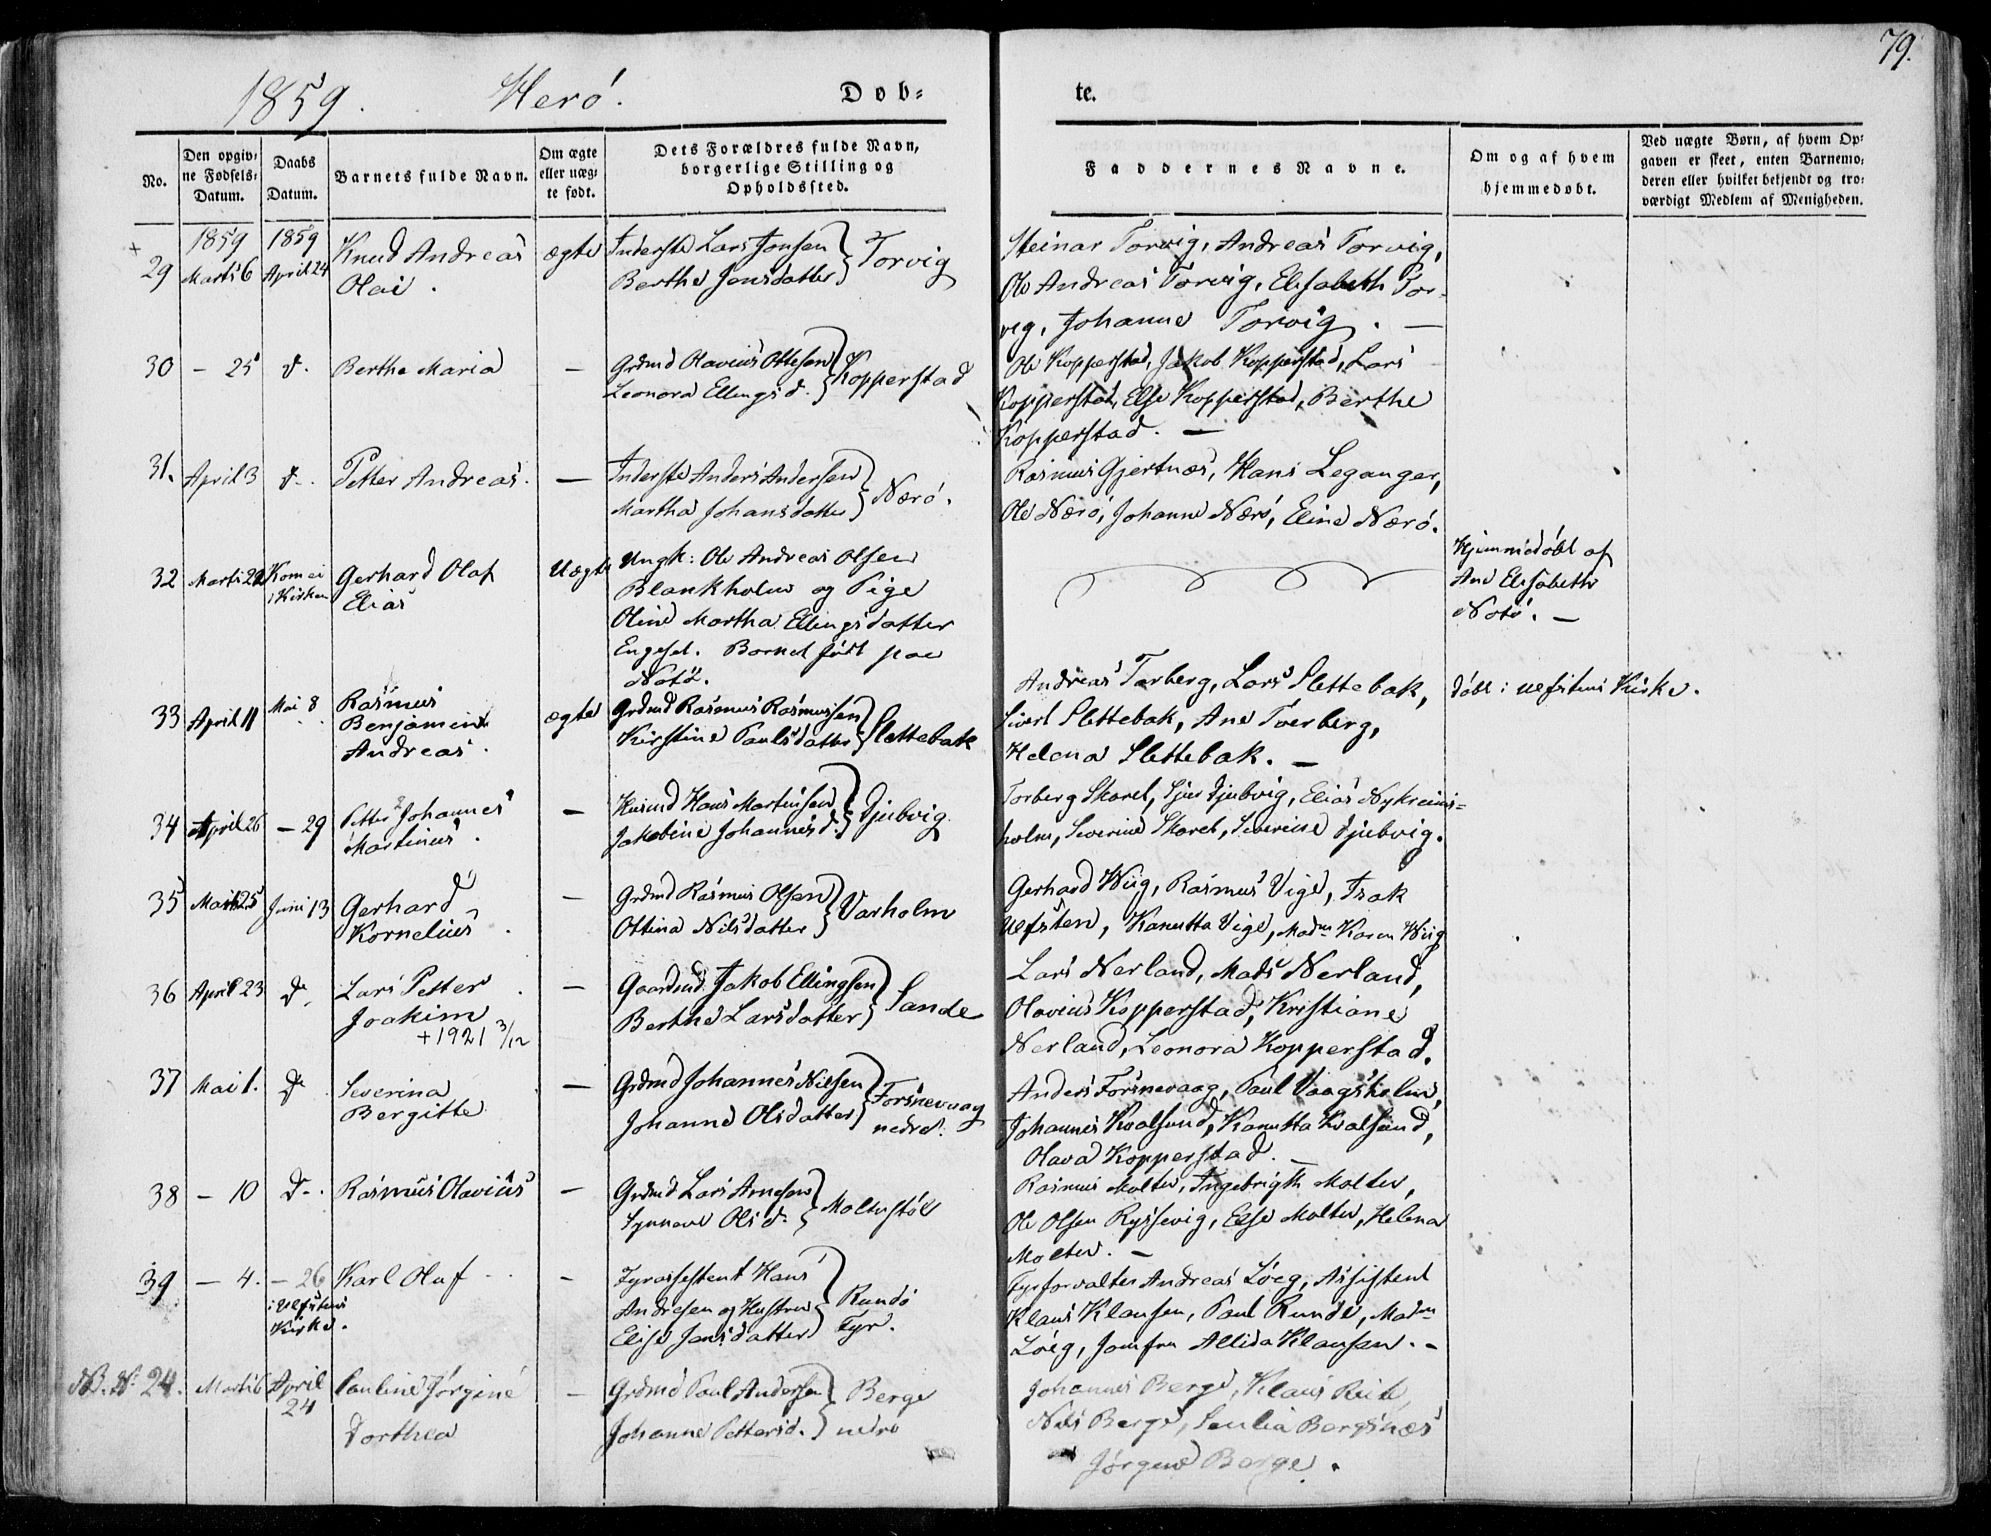 79.
1859. Herö.
Døb-
te.
No.
Den opgiv-
ne Fødsels-
Datum.
Daabs
Datum.
Barnets fulde Navn.
Om ægte
eller uæg-
te født.
Dets Forældres fulde Navn,
borgerlige Stilling og
Opholdssted.
Faddernes Navne.
Om og af hvem
hjemmedøbt.
Ved uægte Børn, af hvem Op-
gaven er skeet, enten Barnemo-
deren eller hvilket bekjendt og tro-
værdigt Medlem af Menigheden.
+
29
1859
Marts 6
1859
April 24
Knud Andreas
Olai.
ægte
Inderste Lars Jonsen
Berthe Jensdatter
Torvig
Steinar Torvig, Andreas Torvig,
Ole Andreas Torvig, Elisabeth Tor-
vig, Johanne Torvig. —
30
- 25
d.
Berthe Maria
—
Grdmd Olavius Ottesen
Leonora Ellingsd.
Kopperstad
Ole Kopperstad, Jakob Kopperstad, Lars
Kopperstad, Else Kopperstad, Berthe
Kopperstad. —
31.
April 3
d-.
Petter Andreas.
—
Inderste Anders Andersen
Martha Johansdatter
Nærö.
Rasmus Gjertnæs, Hans Leganger,
Ole Nærö, Johanne Nærö, Eline Nærö.
32
Marts 22
Kom ei
i Kirken
Gerhard Olaf
Elias
Uægte
Ungk: Ole Andreas Olsen
Blankholm og Pige
Oline Martha Ellingsdatter
Engeset. Barnet födt paa
Notö.
Hjemmedöbt af
Ane Elisabeth
Notö. —
33
April 11
Mai 8
Rasmus
Benjamin
Andreas.
ægte
Grdmd Rasmus Rasmussen
Kirstine Paulsdatter
Slettebak
Andreas Tarberg, Lars Slettebak,
Sivert Slettebak, Ane Tverberg,
Helena Slettebak. —
döbt i Ulfstens Kirke.
34
April 26
- 29
Petter Johannes
Martinus.
—
Husmd Hans Martinsen
Jakobine Johannesd.
Djubvig
Torberg Skaret, Sjur Djubvig, Elias Nykreims-
holm, Severine Skaret, Severine Djubvig.
35
Marts 25
Juni 13
Gerhard
Kornelius.
—
Grdmd Rasmus Olsen
Ottina Nilsdatter
Varholm
Gerhard Wiig, Rasmus Vige, Isak
Ulfsten, Kanutta Vige, Madm Karen Wiig
36
April 23
d.
Lars Petter
Joakim
+ 1921 3/12
—
Gaardmd Jakob Ellingsen
Berthe Larsdatter
Sande
Lars Nerland, Mads Nerland,
Olavius Kopperstad, Kristiane
Nerland, Leonora Kopperstad.
37
Mai 1.
d
Severina
Bergitte
—
Grdmd Johannes Nilsen
Johanne Olsdatter
Forsnevaag
nedre.
Anders Forsnevaag, Paul Vaagsholm,
Johannes Kvalsund, Kanutta Kvalsund,
Olava Kopperstad. —
38
- 10
d-.
Rasmus Olavius
—
Grdmd Lars Arnesen
Synnøve Olsd.
Moltustöl
Rasmus Moltu, Ingebrigt Moltu,
Ole Olsen Ryssevig, Else Moltu, Helena
Moltu. —
39
- 4.
- 26
i Ulfstens
Kirke.
Karl Olaf
-
Fyrassistent Hans
Andresen og Hustru
Elise Jansdatter
Rundö
Fyr.
Fyrforvalter Andreas Löeg, Assistent
Klaus Klausen, Paul Runde, Madm
Löeg, Jomfru Allida Klausen. -
NB. No 24.
Marts 6
April
24
Pauline Jörgine
Dorthea
—
Grdmd Paul Andersen
Johanne Pettersd.
Berge
nedre
Johannes Berge, Klaus Reite,
Nils Berge, Bergsnæs
Jörgine Berge.